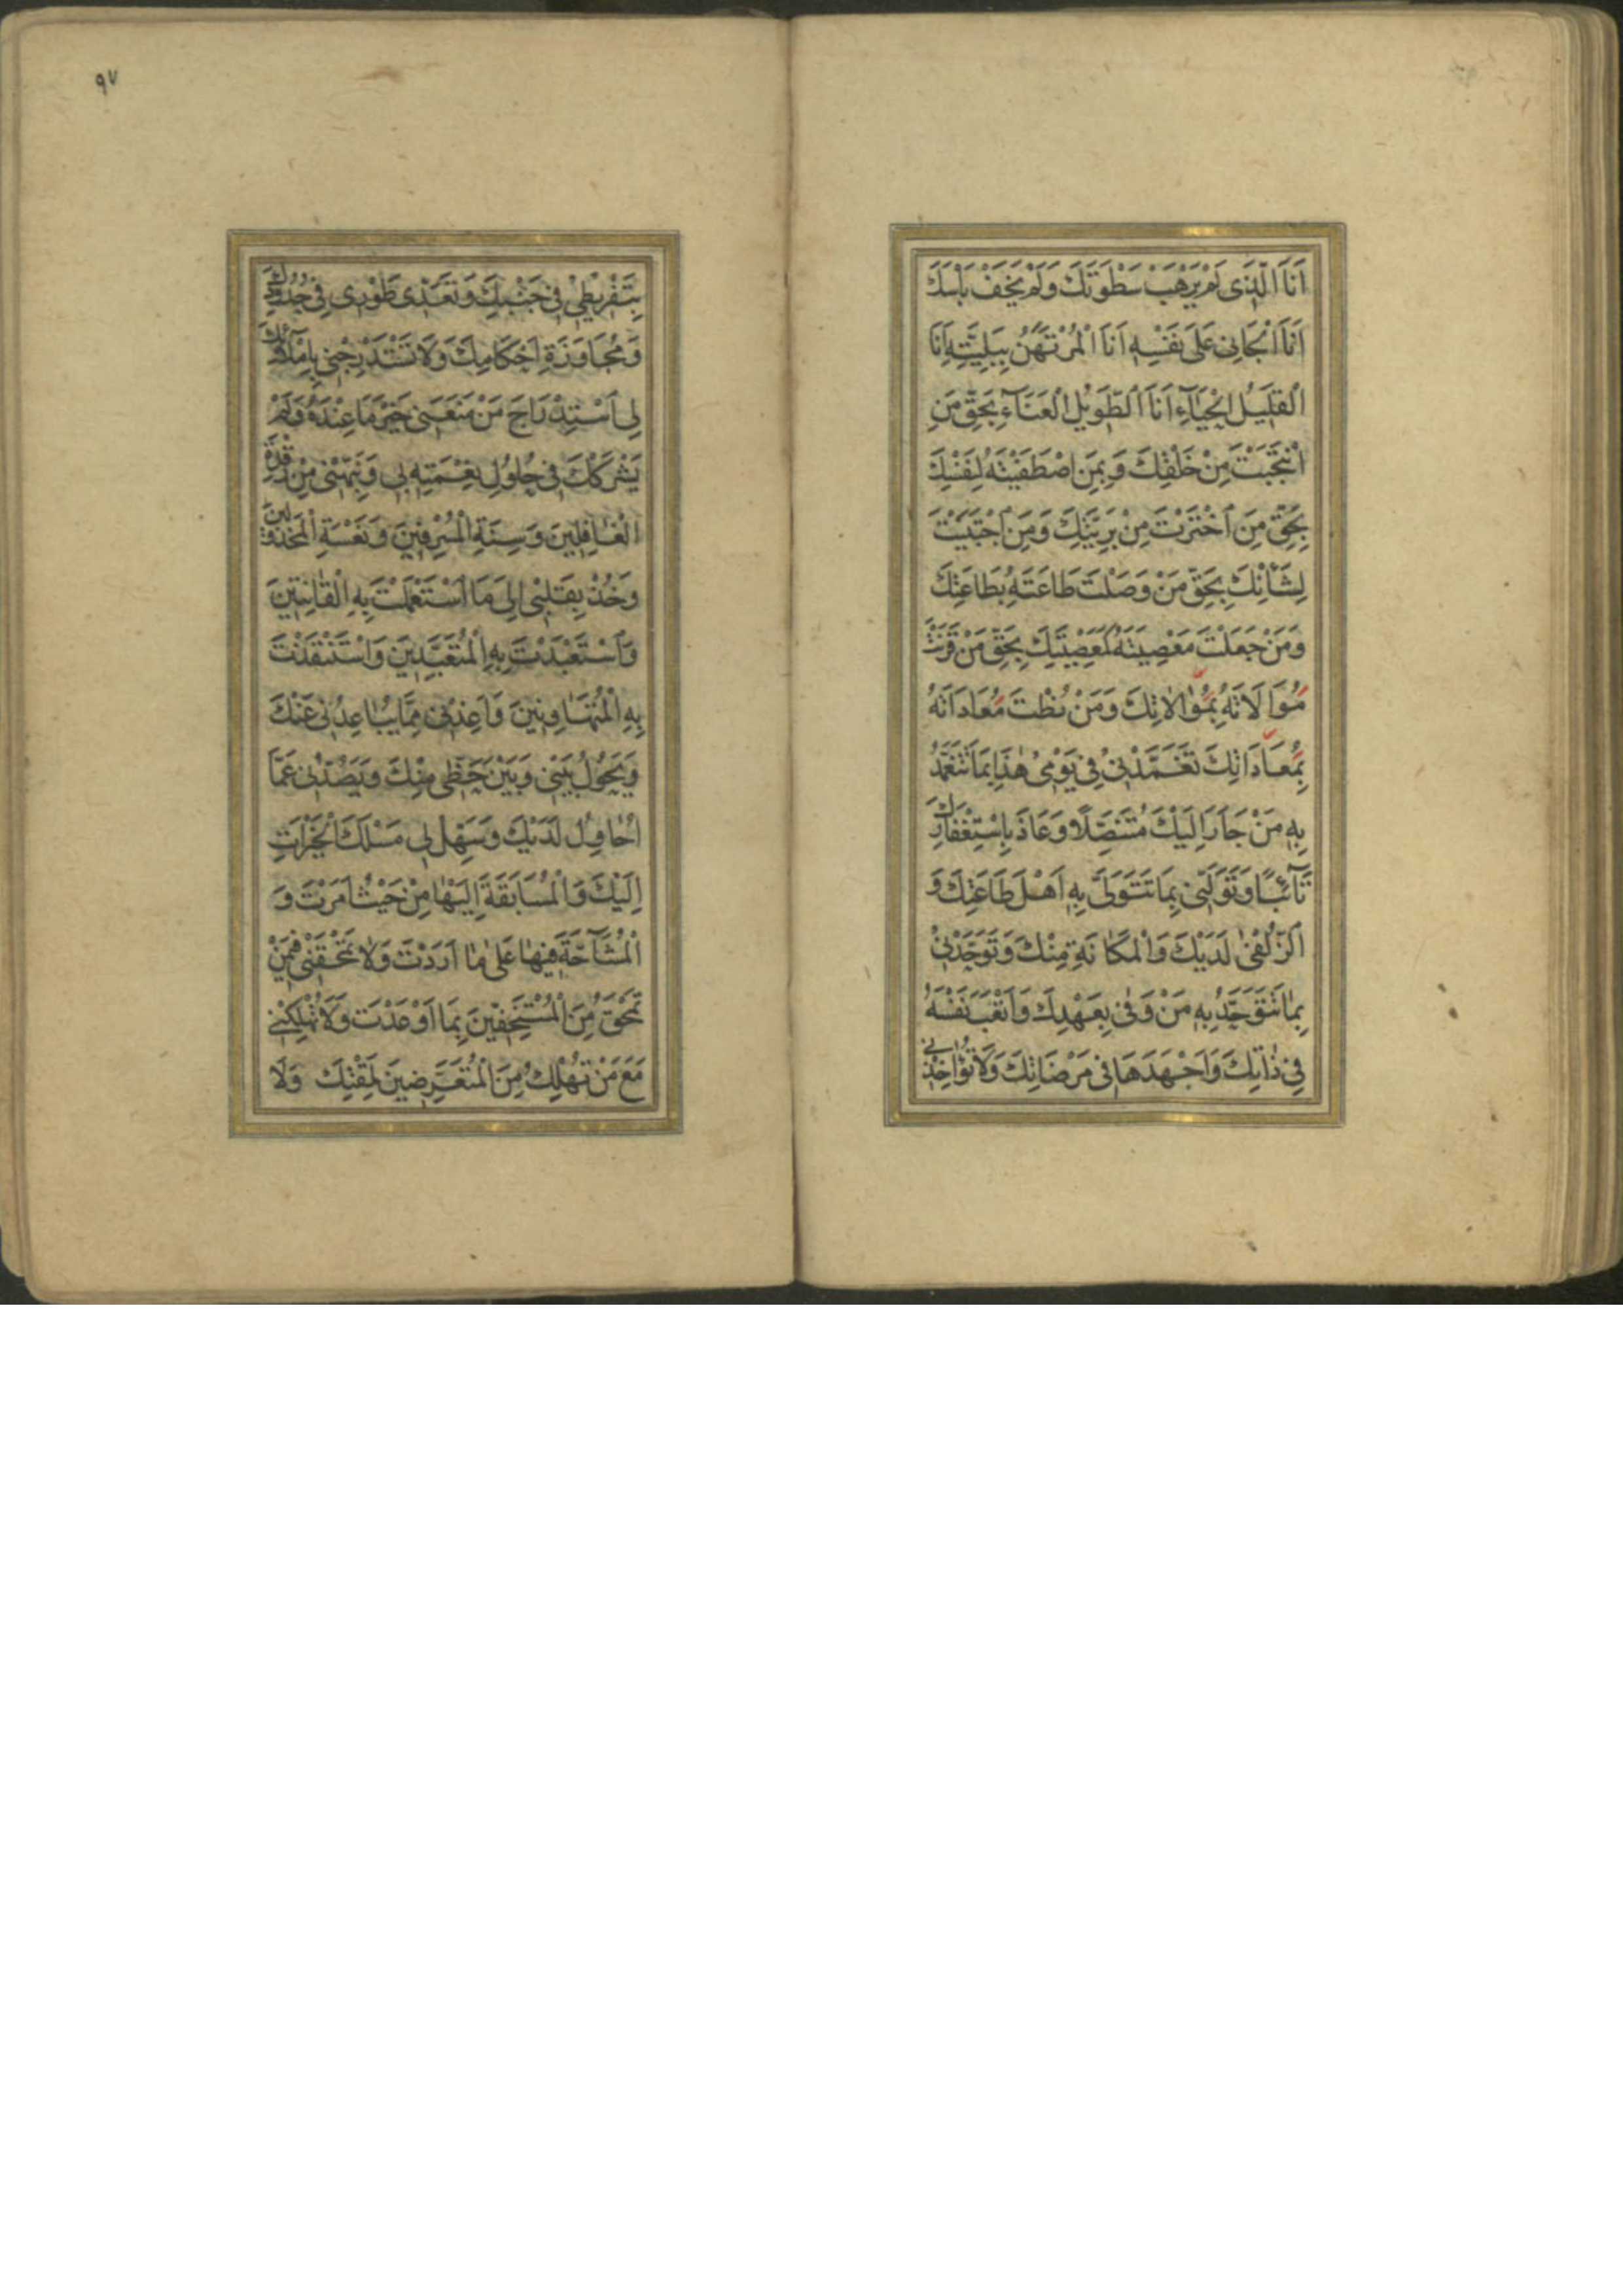 اَنَا الَّذی لَمْ یَرْهَبْ سَطْوَتَكَ وَلَمْ یَخَفْ بَاْسَكَ
اَنَا الْجَانِی عَلَی نَفْسِهِ اَنَا الْمُرْتَهَنُ بِبَلِیَّتِهِ اَنَا
الْقَلِیلُ الْحَیَآءِ اَنَا الطَّوِیلُ الْعَنَآءِ بِحَقِّ مَنِ
انْتَجَبْتَ مِنْ خَلْقِكَ وَبِمَنِ اصْطَفَیْتَهُ لِنَفْسِكَ
بِحَقِّ مَنِ اخْتَرْتَ مِنْ بَرِیَّتِكَ وَمَنِ اجْتَبَیْتَ
لِشَاْنِكَ بِحَقِّ مَنْ وَصَلْتَ طَاعَتَهُ بِطَاعَتِكَ
وَمَنْ جَعَلْتَ مَعْصِیَتَهُ كَمَعْصِیَتِكَ بِحَقِّ مَنْ قَرَنْتَ
مُوَالَاتَهُ بِمُوٰالاٰتِكَ وَمَنْ نُطْتَ مُعَادَاتَهُ
بِمُعَادَاتِكَ تَغَمَّدْنِی فِی یَوْمِی هٰذَا بِمَا تَتَغَمَّدُ
بِهِ مَنْ جَاَرَ اِلَیْكَ مُتَنَصِّلًا وَعَاذَ بِاسْتِغْفَارِكَ
تَآئِبًا وَتَوَلَّنِی بِمَا تَتَوَلَّی بِهِ اَهْلَ طَاعَتِكَ وَ
الزُّلْفٰی لَدَیْكَ وَالْمَكَانَةِ مِنْكَ وَتَوَحَّدْنِی
بِمٰا تَتَوَحَّدُ بِهِ مَنْ وَفٰی بِعَهْدِكَ وَاَتْعَبَ نَفْسَهُ
فِی ذٰاتِكَ وَاَجْهَدَهَا فِی مَرْضَاتِكَ وَلَا تُؤَاخِذْنِی
۹۷
بِتَفْرِیْطِیْ فِی جَنْبِكَ وَتَعَدِّی طَوْرِی فِی حُدُودِكَ
وَمُجَاوَزَةِ اَحْكَامِكَ وَلَا تَسْتَدْرِجْنِی بِاِمْلَآئِكَ
لِی اسْتِدْرَاجَ مَنْ مَنَعَنِی خَیْرَ مَا عِنْدَهُ وَلَمْ
یَشْرَكْكَ فِی حُلُولِ نِعْمَتِهِ بِی وَنَبِّهْنِی مِنْ رَقْدَةِ
الْغَافِلِینَ وَسِنَةِ الْمُسْرِفِینَ وَنَعْسَةِ الْمَخْذُولِینَ
وَخُذْ بِقَلْبِی اِلَی مَا اسْتَعْمَلْتَ بِهِ الْقٰانِتِینَ
وَاسْتَعْبَدْتَ بِهِ الْمُتَعَبِّدِینَ وَاسْتَنْقَذْتَ
بِهِ الْمُتَهَاوِنِینَ وَاَعِذْنِی مِمَّا یُبَاعِدُنِی عَنْكَ
وَیَحُولُ بَیْنِی وَبَیْنَ حَظِّی مِنْكَ وَیَصُدُّنِی عَمَّا
اُحَاوِلُ لَدَیْكَ وَسَهِّلْ لِی مَسْلَكَ الْخَیْرَاتِ
اِلَیْكَ وَالْمُسَابَقَةَ اِلَیْهَا مِنْ حَیْثُ اَمَرْتَ وَ
الْمُشَآحَّةَ فِیهَا عَلٰی مٰا اَرَدْتَ وَلاٰ تَمْحَقْنِی فِیمَنْ
تَمْحَقُ مِنَ الْمُسْتَخِفِّینَ بِمَا اَوْعَدْتَ وَلَا تُهْلِكْنِی
مَعَ مَنْ تُهْلِكُ مِنَ الْمُتَعَرِّضِینَ لِمَقْتِكَ وَلَا